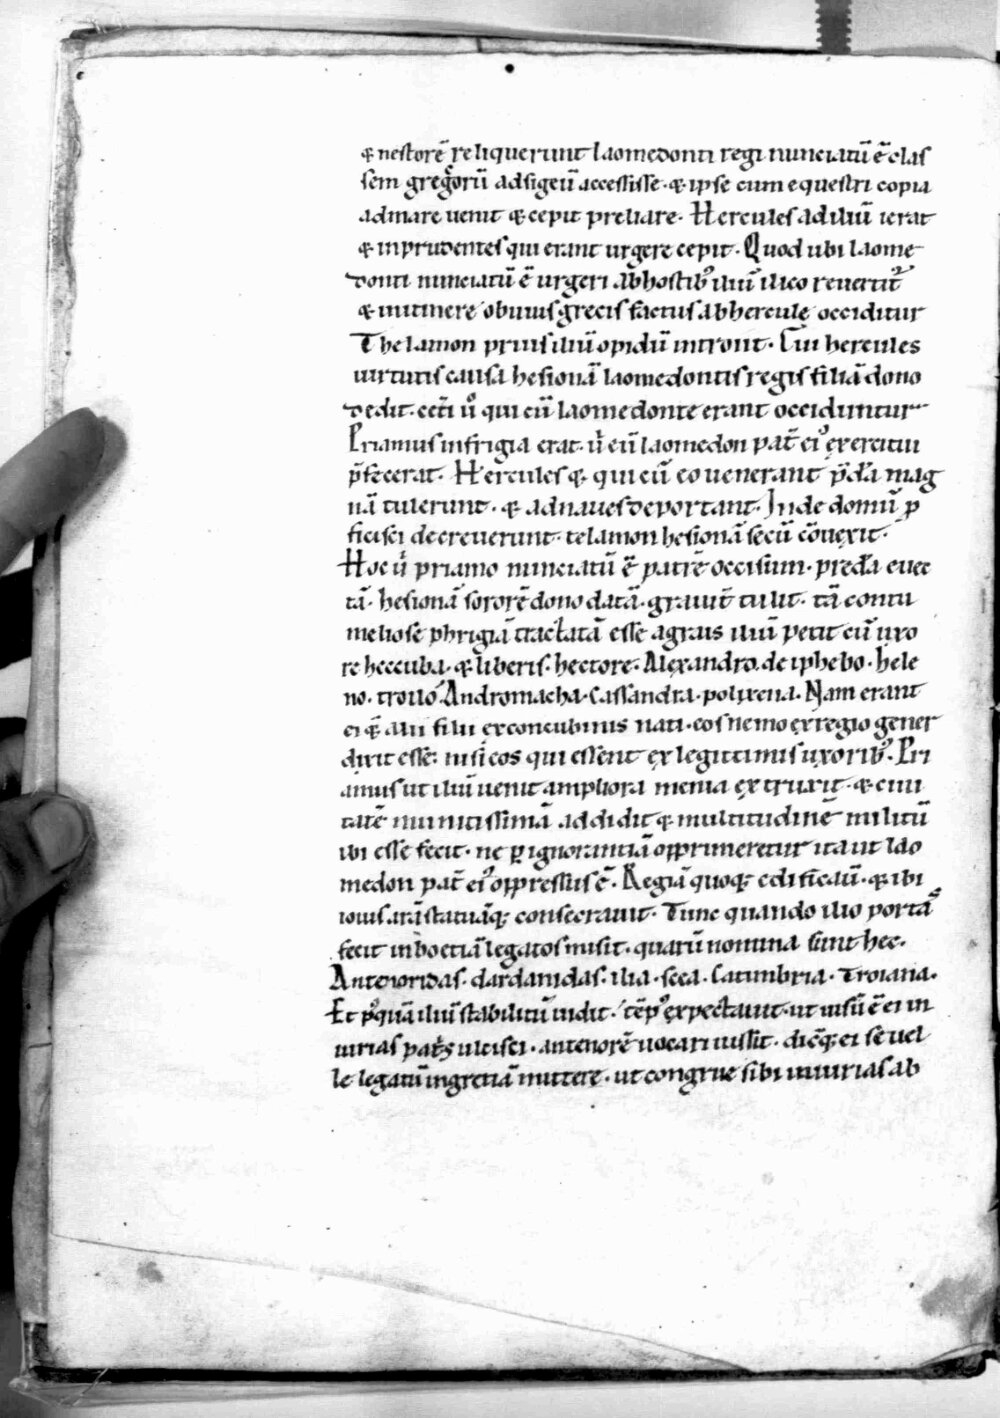 & nestorē reliquerunt laomedonti regi nunciatū ē clas
sem gregorū ad sigeū accessisse · & ipse cum equestri copia
ad mare uenit & cepit preliare · Hercules ad iliū ierat
& inprudentes qui erant urgere cepit · Quod ubi laome
donti nunciatū ē urgeri ab hostib; iliū ilico reuertit̄
& initinere obuius grecis factus ab hercule occiditur
Thelamon prius iliū opidū introiit · Cui hercules
uirtutis causa hesionā laomedontis regis filiā dono
dedit · cet̄i ů qui cū laomedonte erant occiduntur
Priamus in frigia erat · u̇ eū laomedon pat̄ ei⁹ exercitui
p̄fecerat · Hercules & qui cū eo uenerant p̄da mag
nā tulerunt · & ad naues deportant · Inde domū p
ficisci decreuerunt · telamon hesionā secū cōuexit ·
Hoc u̇ priamo nunciatū ē patrē occisum · preda euec
tā · hesionā sororē dono datā · grauit̄ tulit · tā contu
meliose phrigiā tractatā esse agrais iliū petit cū uxo
re heccuba · & liberis · hectore · Alexandro de iphebo · hele
no · troilo · Andromacha · Cassandra · polixena · Nam erant
ei q̄ alii filii ex concubinis nati · eos nemo ex regio gener
dixit esse: nisi eos qui essent ex legittimis uxorib; · Pri
amus ut iliū uenit ampliora menia extruxit · & ciui
tatē munitissimā addidit & multitudinē militū
ibi esse fecit · ne p̄ ignorantiā opprimeretur ita ut lao
medon pat̄ ei⁹ oppressus ē · Regiā quoq; edificauit · & ibi
iouis arā statuāq; consecrauit · Tunc quando ilio portā
fecit in boetiā legatos misit · quarū nomina sunt hec ·
Antenoridas · dardanidas · ilia · seca · Catimbria · Troiana ·
Et p⁹quā iliū stabilitū uidit · tēp⁹ expectauit · ut uisū ē ei in
iurias pat̄s ulcisci · antenorē uocari iussit · dicitq; ei se uel
le legatū in gretiā mittere · ut congrue sibi iniurias ab